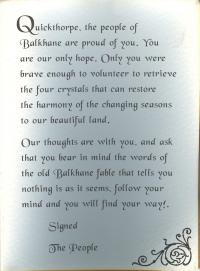 Quickthorpe, the people of
Balkhane are proud of you. You
are our only hope. Only you were
brave enough to volunteer to retrieve
the four crystals that can restore
the harmony of the changing seasons
to our beautiful land.
Our thoughts are with you, and ask
that you bear in mind the words of
the old Balkhane fable that tells you
nothing is as it seems, follow your
mind and you will find your way!.
Signed
The People